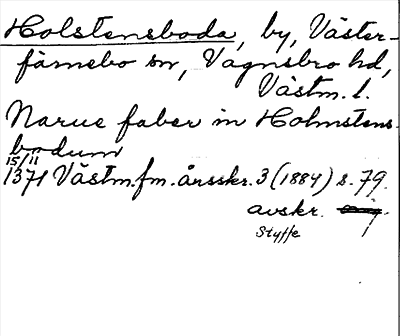 Holstensboda, by, Väster-
färnebo sn, Vagnsbro hd,
Västm. l.
Narue faber in Holmstens
bodum
15/11
1371 Västm.fm.årsskr. 3 (1884) s. 79.
avskr.
Styffe